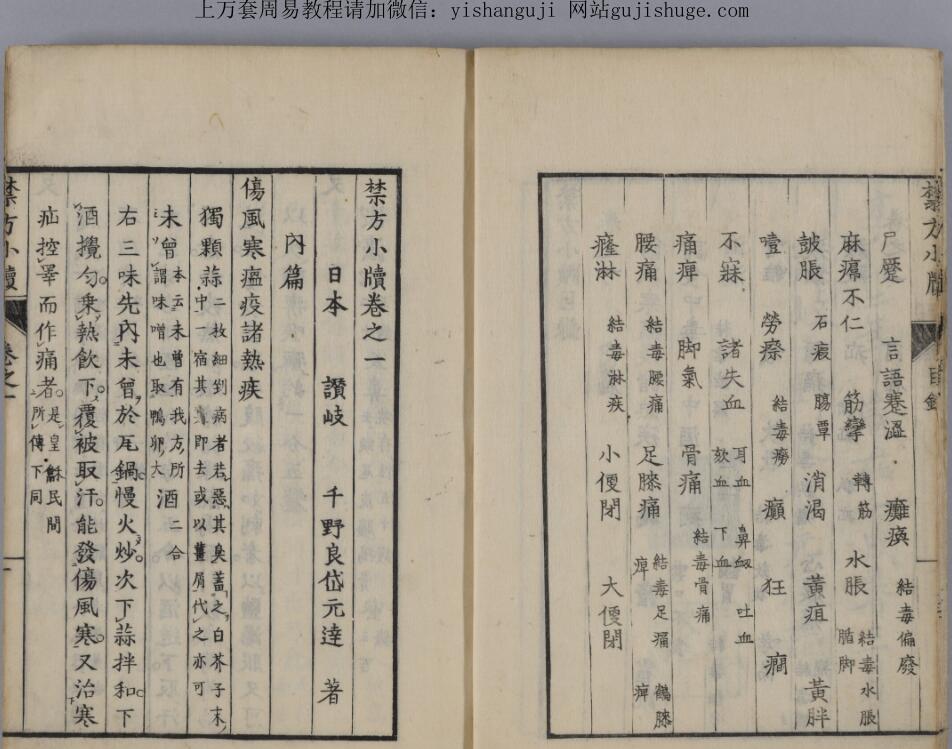 上万套周易教程请加微信：yishanguji 网站gujishuge.com
禁方小牘 目錄
尸蹷 言語蹇澁 癱瘓 結毒偏廢
麻瘪不仁 筋攣 轉筋 水脹 結毒水脹 脂脚
皷脹 石瘕 腸蕈 消渴 黃疸 黃胖
噎 勞瘵 結毒癆 癲 狂 癇
不寐 諸失血 耳血 欬血 鼻衂 下血 吐血
痛痺 脚氣 骨痛 結毒骨痛
腰痛 結毒腰痛 足膝痛 結毒足痛 痺 鶴膝
癃淋 結毒淋疾 小便閉 大便閉
禁方小牘卷之一
日本 讚岐 千野良岱元達 著
內篇
傷風寒瘟疫諸熱疾
獨顆蒜二枚細剉病者若惡其臭蓋之白芥子末
中一宿其臭即去或以薑屑代之亦可
未曾本云未曾有我方所謂味噌也取鴨卵大酒二合
右三味先內未曾於瓦鍋慢火炒次下蒜拌和下
酒攪勻乗熱飲下覆被取汗能發傷風寒又治寒
疝控睪而作痛者是皇龢民間所傳下同
禁方小牘 卷之一 一